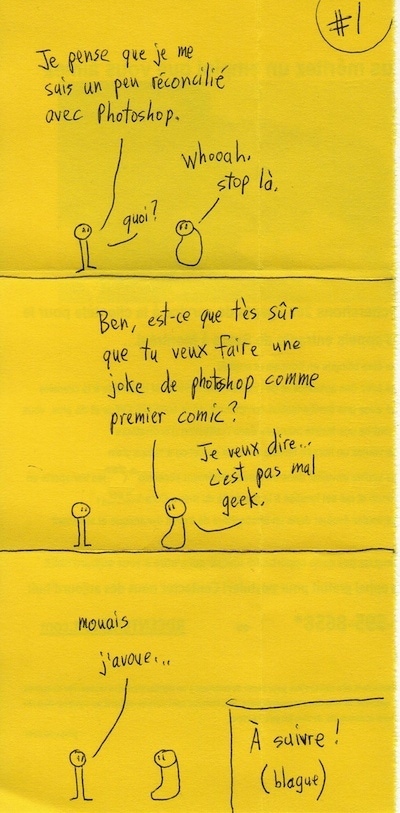 #1
Je pense que je me
suis un peu réconcilié
avec Photoshop.
Whooah.
stop là.
quoi?
Ben, est-ce que t'ès sûr
que tu veux faire une
joke de photshop comme
premier comic?
Je veux dire...
c'est pas mal
geek.
mouais
j'avoue...
À suivre!
(blague)